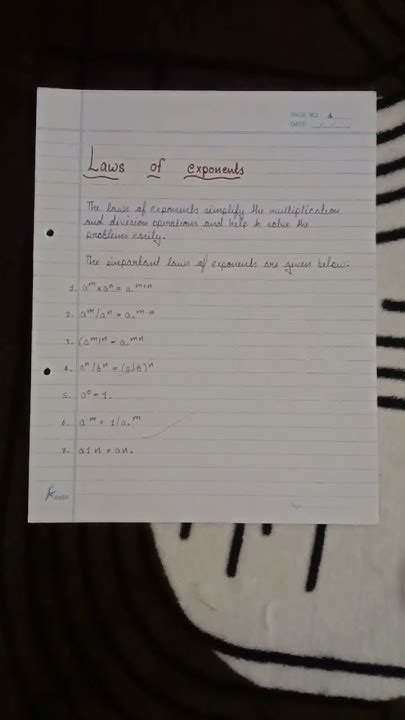 PAGE NO. 4
DATE
Laws of exponents
The laws of exponents simplify the multiplication
and division operations and help to solve the
problems easily.
The important laws of exponents are given below:
1. aᵐ×aⁿ = aᵐ⁺ⁿ
2. aᵐ/aⁿ = aᵐ⁻ⁿ
3. (aᵐ)ⁿ = aᵐⁿ
4. aⁿ/bⁿ = (a/b)ⁿ
5. a⁰ = 1.
6. a ᵐ = 1/aᵐ